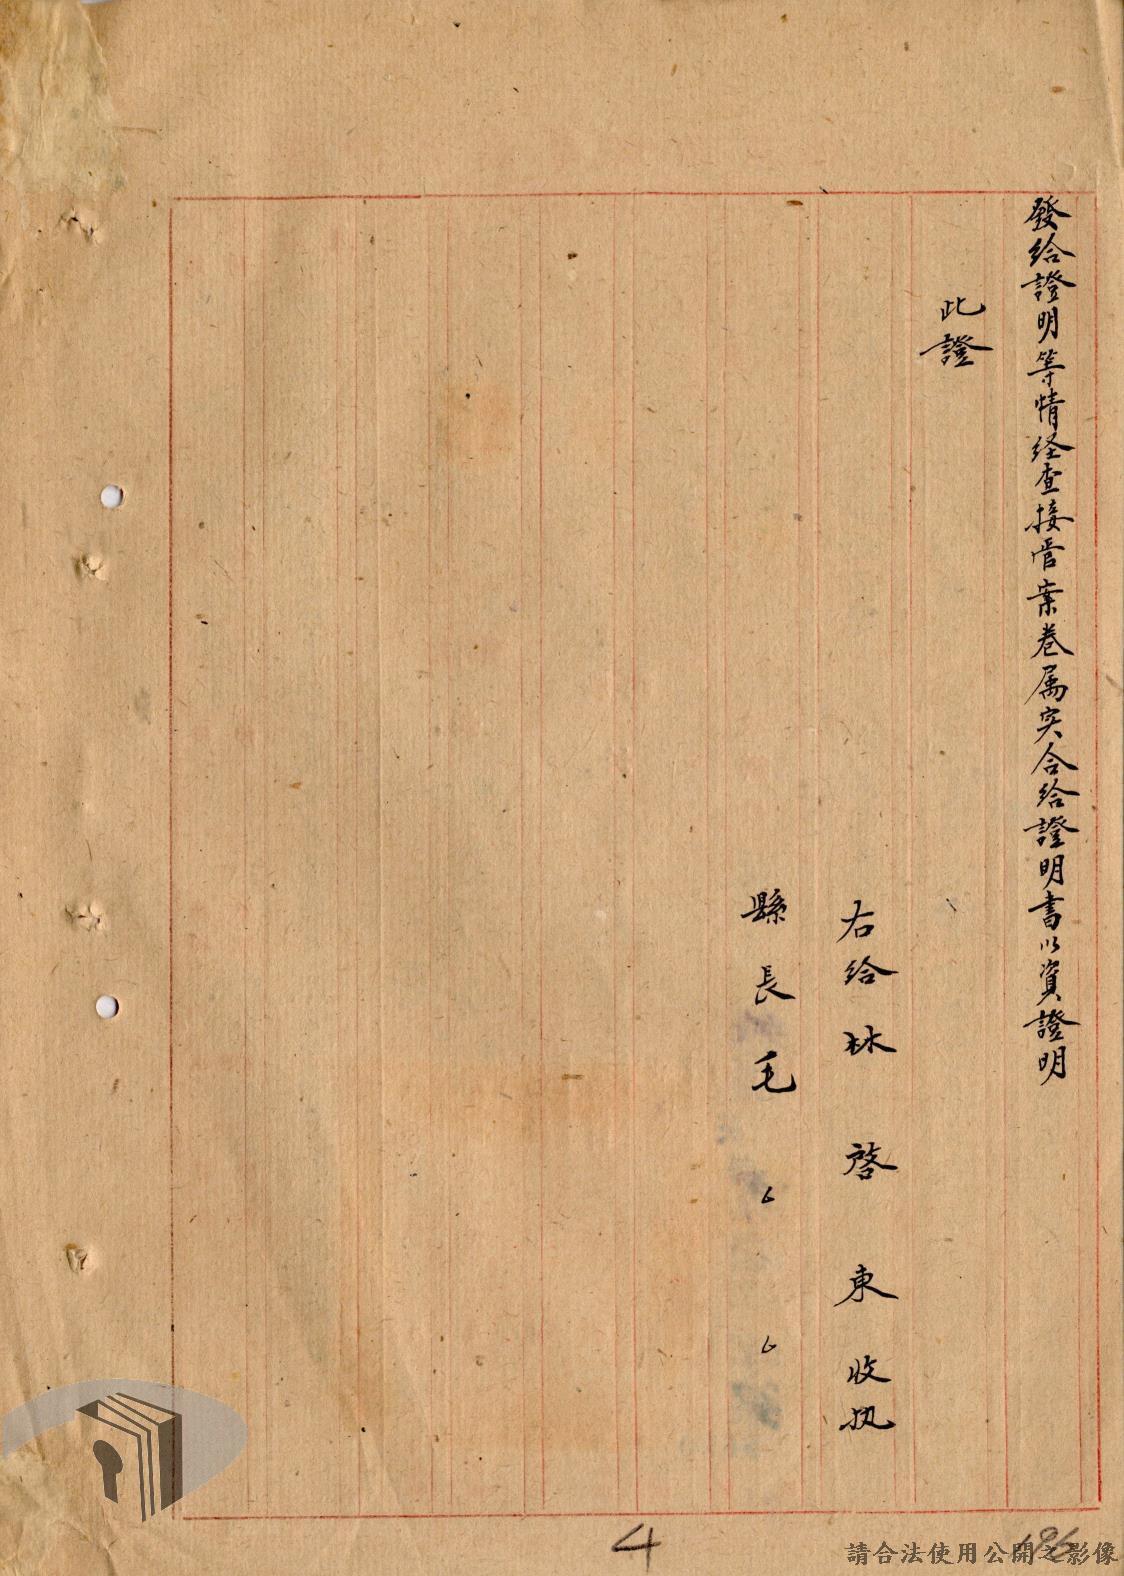 發給證明等情経查接管案卷属实合給證明書以資證明
此證
右給林啓東收执
縣長毛
4
196
請合法使用公開之影像